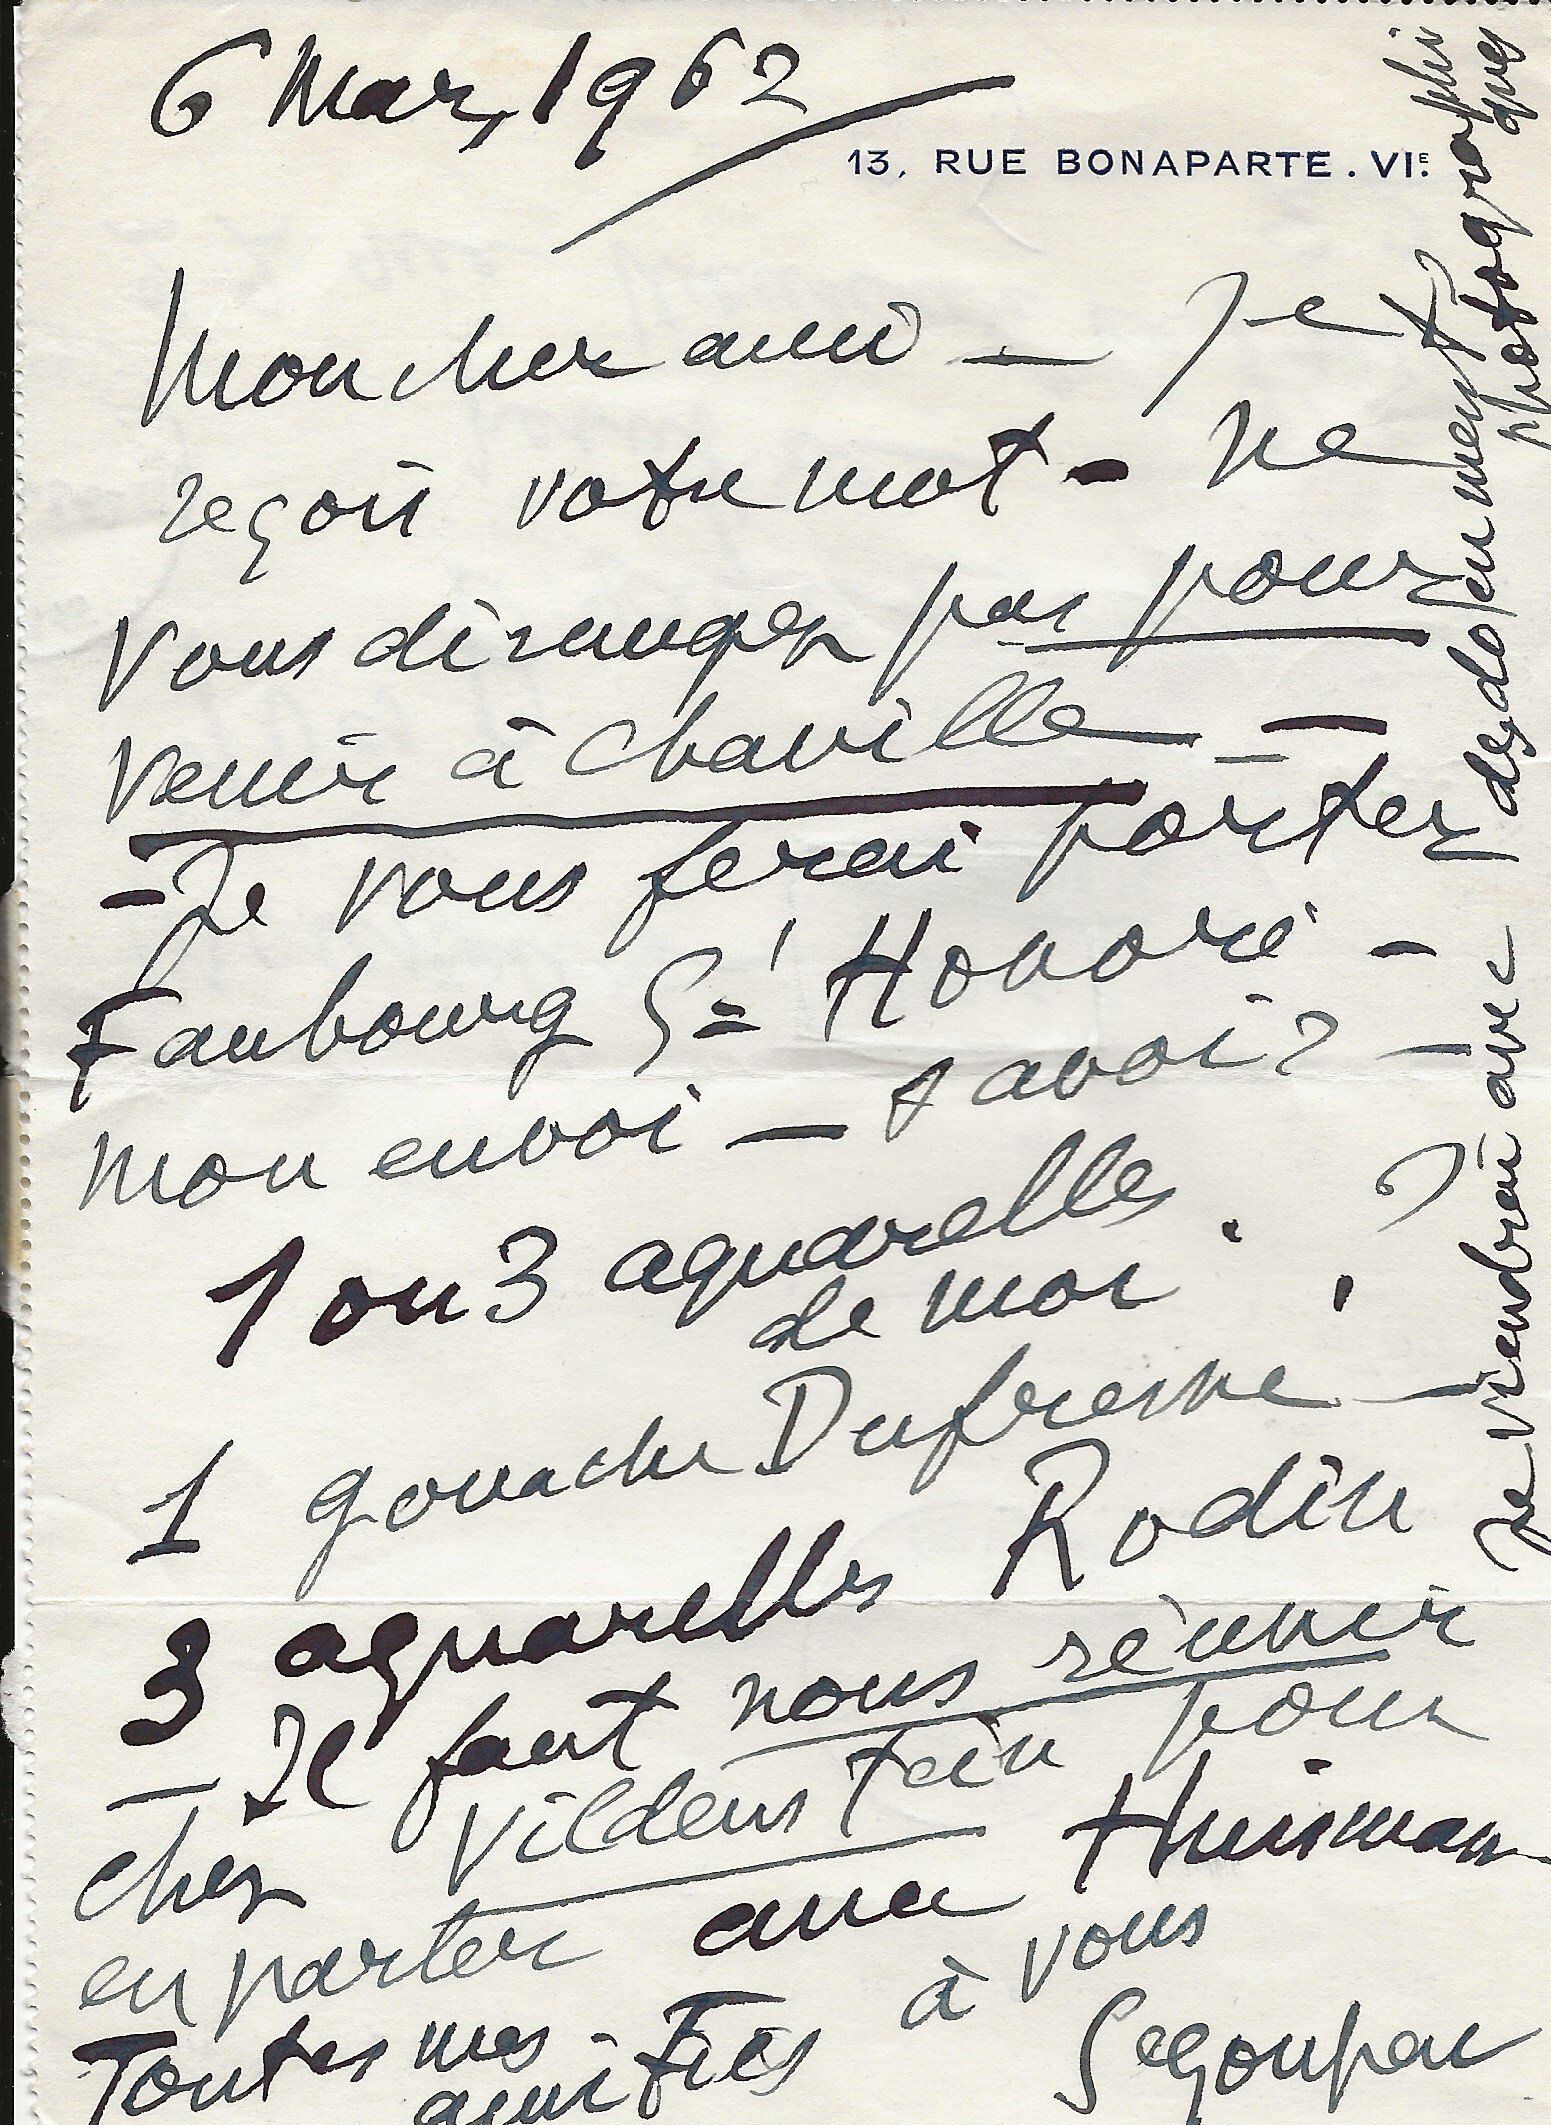 6 Mars, 1962
13, RUE BONAPARTE. VIE.
Mon cher ami — Je
reçois votre mot - Ne
vous dérangez pas pour
venir à Chaville —
- Je vous ferai porter
Faubourg St Honoré -
mon envoi — savoir —
1 ou 3 aquarelles
de moi.
1 gouache Dufresne —
3 aquarelles Rodin
— Il faut nous réunir
chez Vildenstein pour
en parler avec Thuisman
Toutes mes à vous
amitiés Segonzac
Je viendrai avec des documents
photographiques